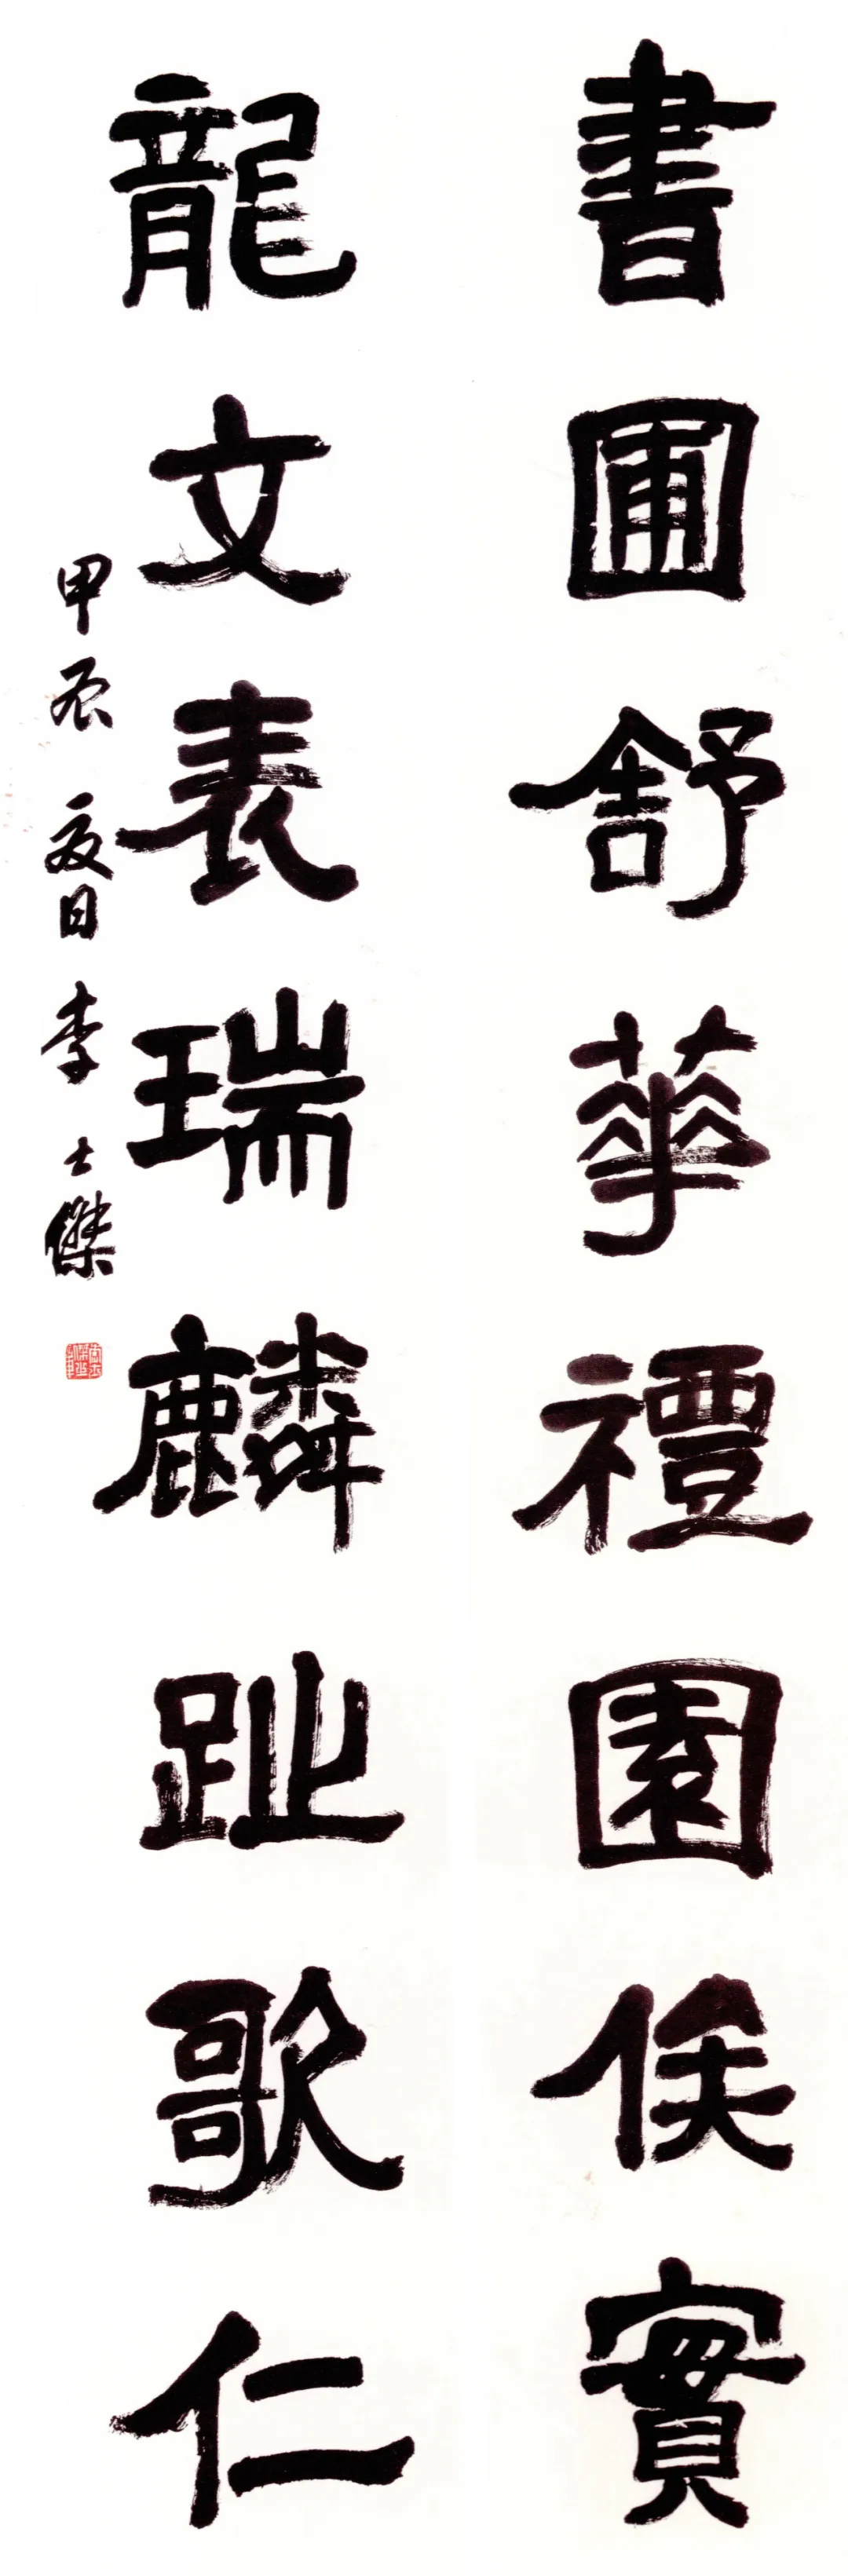 書圃舒華禮園俟實
龍文表瑞麟趾歌仁
甲辰夏日李士傑